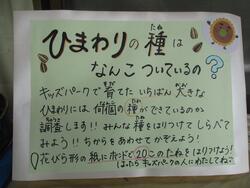 ひまわりの種は
なんこ ついているの?
キッズパークで育てた いちばん 大きな
ひまわりには、何個の種ができているのか
調査します!! みんな 種をはりつけて しらべて
みよう!! ちからをあわせて かぞえよう!
花びら形の紙にボンドで20このたねをはりつけよう!
はったら キッズパークの人にわたしてね